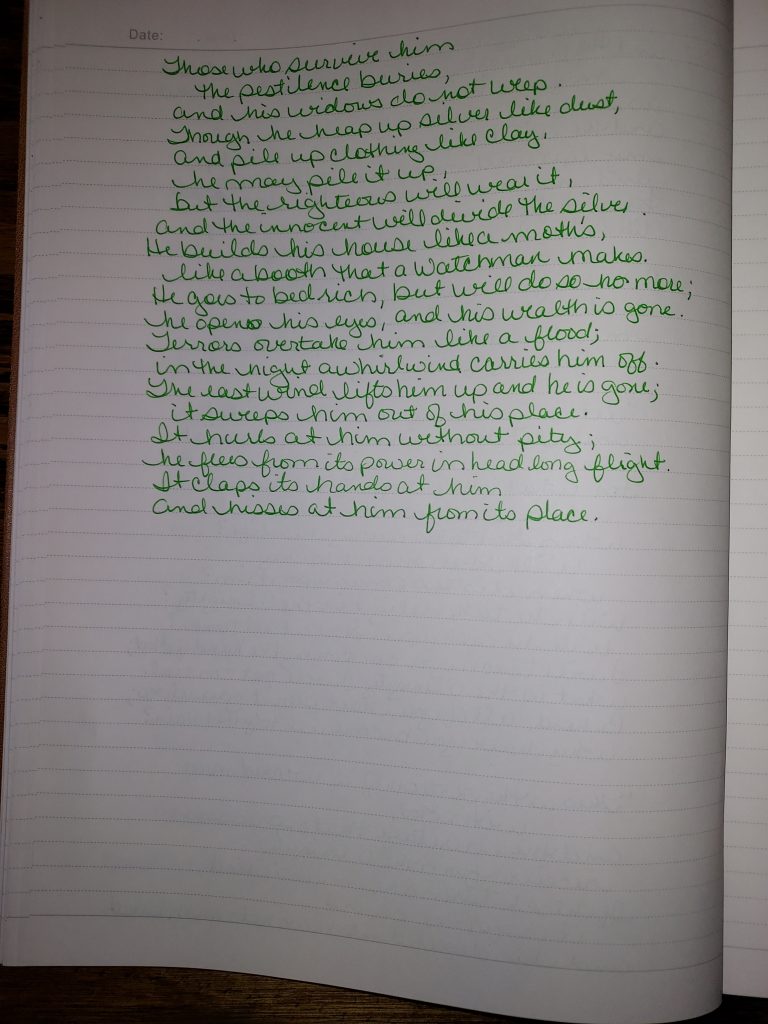 Date:
Those who survive him
the pestilence buries,
and his widows do not weep.
Though he heap up silver like dust,
and pile up clothing like clay,
he may pile it up,
but the righteous will wear it,
and the innocent will divide the silver.
He builds his house like a moth's,
like a booth that a watchman makes.
He goes to bed rich, but will do so no more;
he opens his eyes, and his wealth is gone.
Terrors overtake him like a flood;
in the night a whirlwind carries him off.
The east wind lifts him up and he is gone;
it sweeps him out of his place.
It hurls at him without pity;
he flees from its power in head long flight.
It claps its hands at him
and hisses at him from its place.